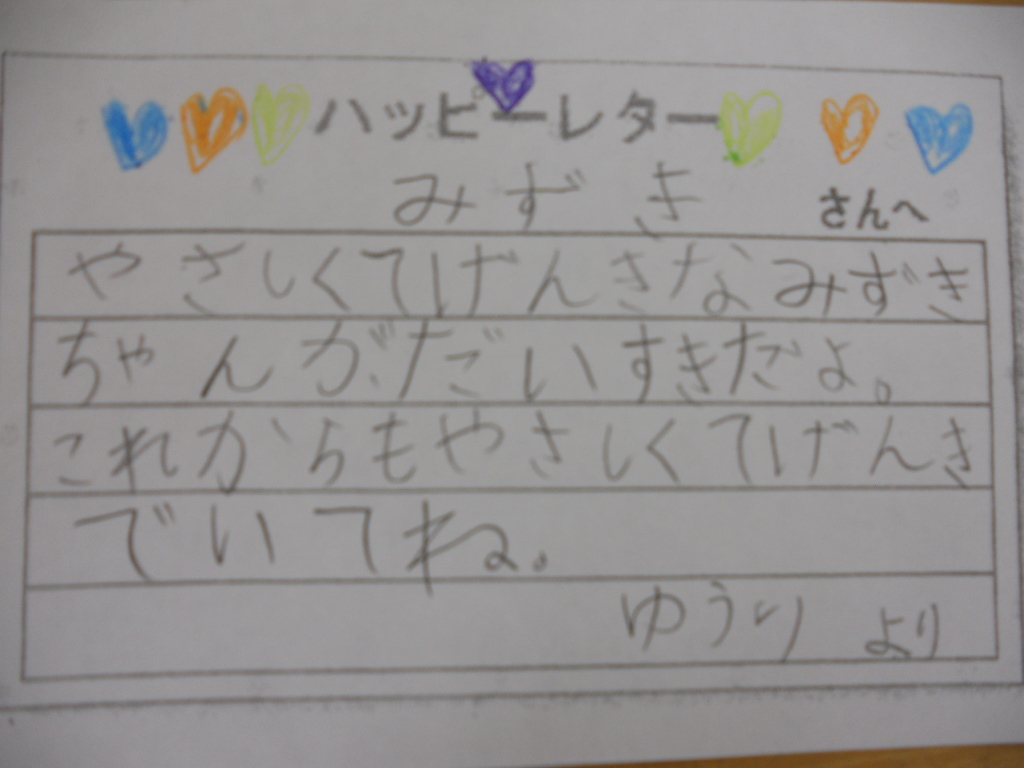 ハッピーレター
みずき さんへ
やさしくてげんきなみずき
ちゃんがだいすきだよ。
これからもやさしくてげんき
でいてね。
ゆうり より